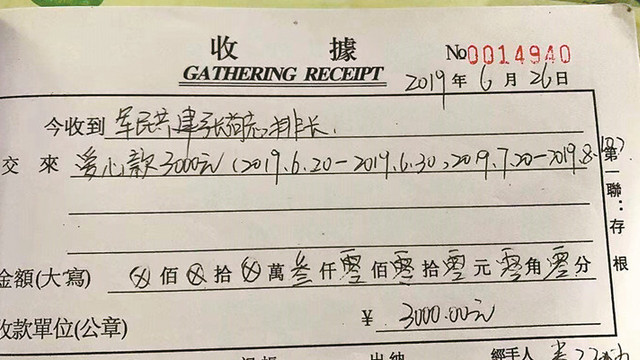 收 據 No 0014940
GATHERING RECEIPT
2019 年 6 月 26 日
今收到 军民共建张 排长
交 來 爱心款3000元(2019.6.20-2019.6.30,2019.7.20-2019.8.
第一聯:存根
金額(大寫) ⊗ 佰 ⊗ 拾 ⊗ 萬 叁 仟 零 佰 零 拾 零 元 零 角 零 分
收款單位(公章) ¥ 3000.00元
出 納 經手人